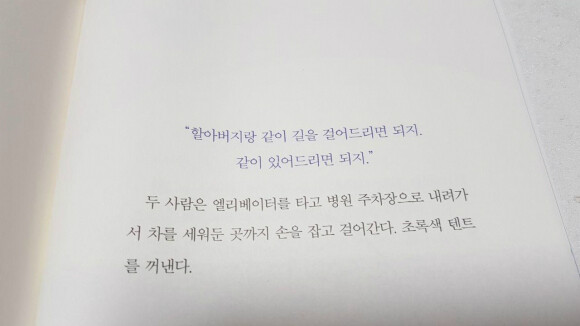 “할아버지랑 같이 길을 걸어드리면 되지.
같이 있어드리면 되지.”
두 사람은 엘리베이터를 타고 병원 주차장으로 내려가
서 차를 세워둔 곳까지 손을 잡고 걸어간다. 초록색 텐트
를 꺼낸다.